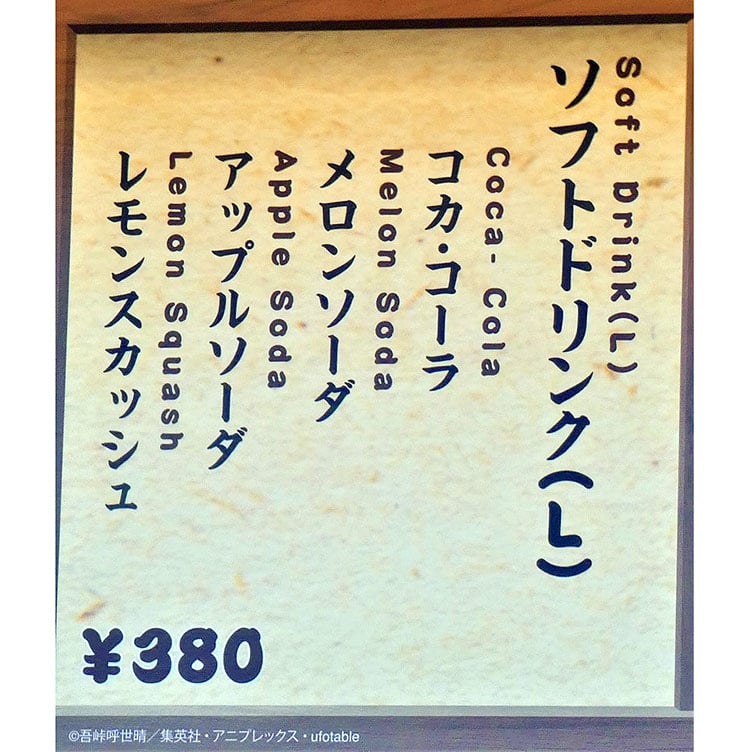 Soft Drink(L)
ソフトドリンク(L)
Coca-Cola
コカ・コーラ
Melon Soda
メロンソーダ
Apple Soda
アップルソーダ
Lemon Squash
レモンスカッシュ
¥380
©吾峠呼世晴／集英社・アニプレックス・ufotable